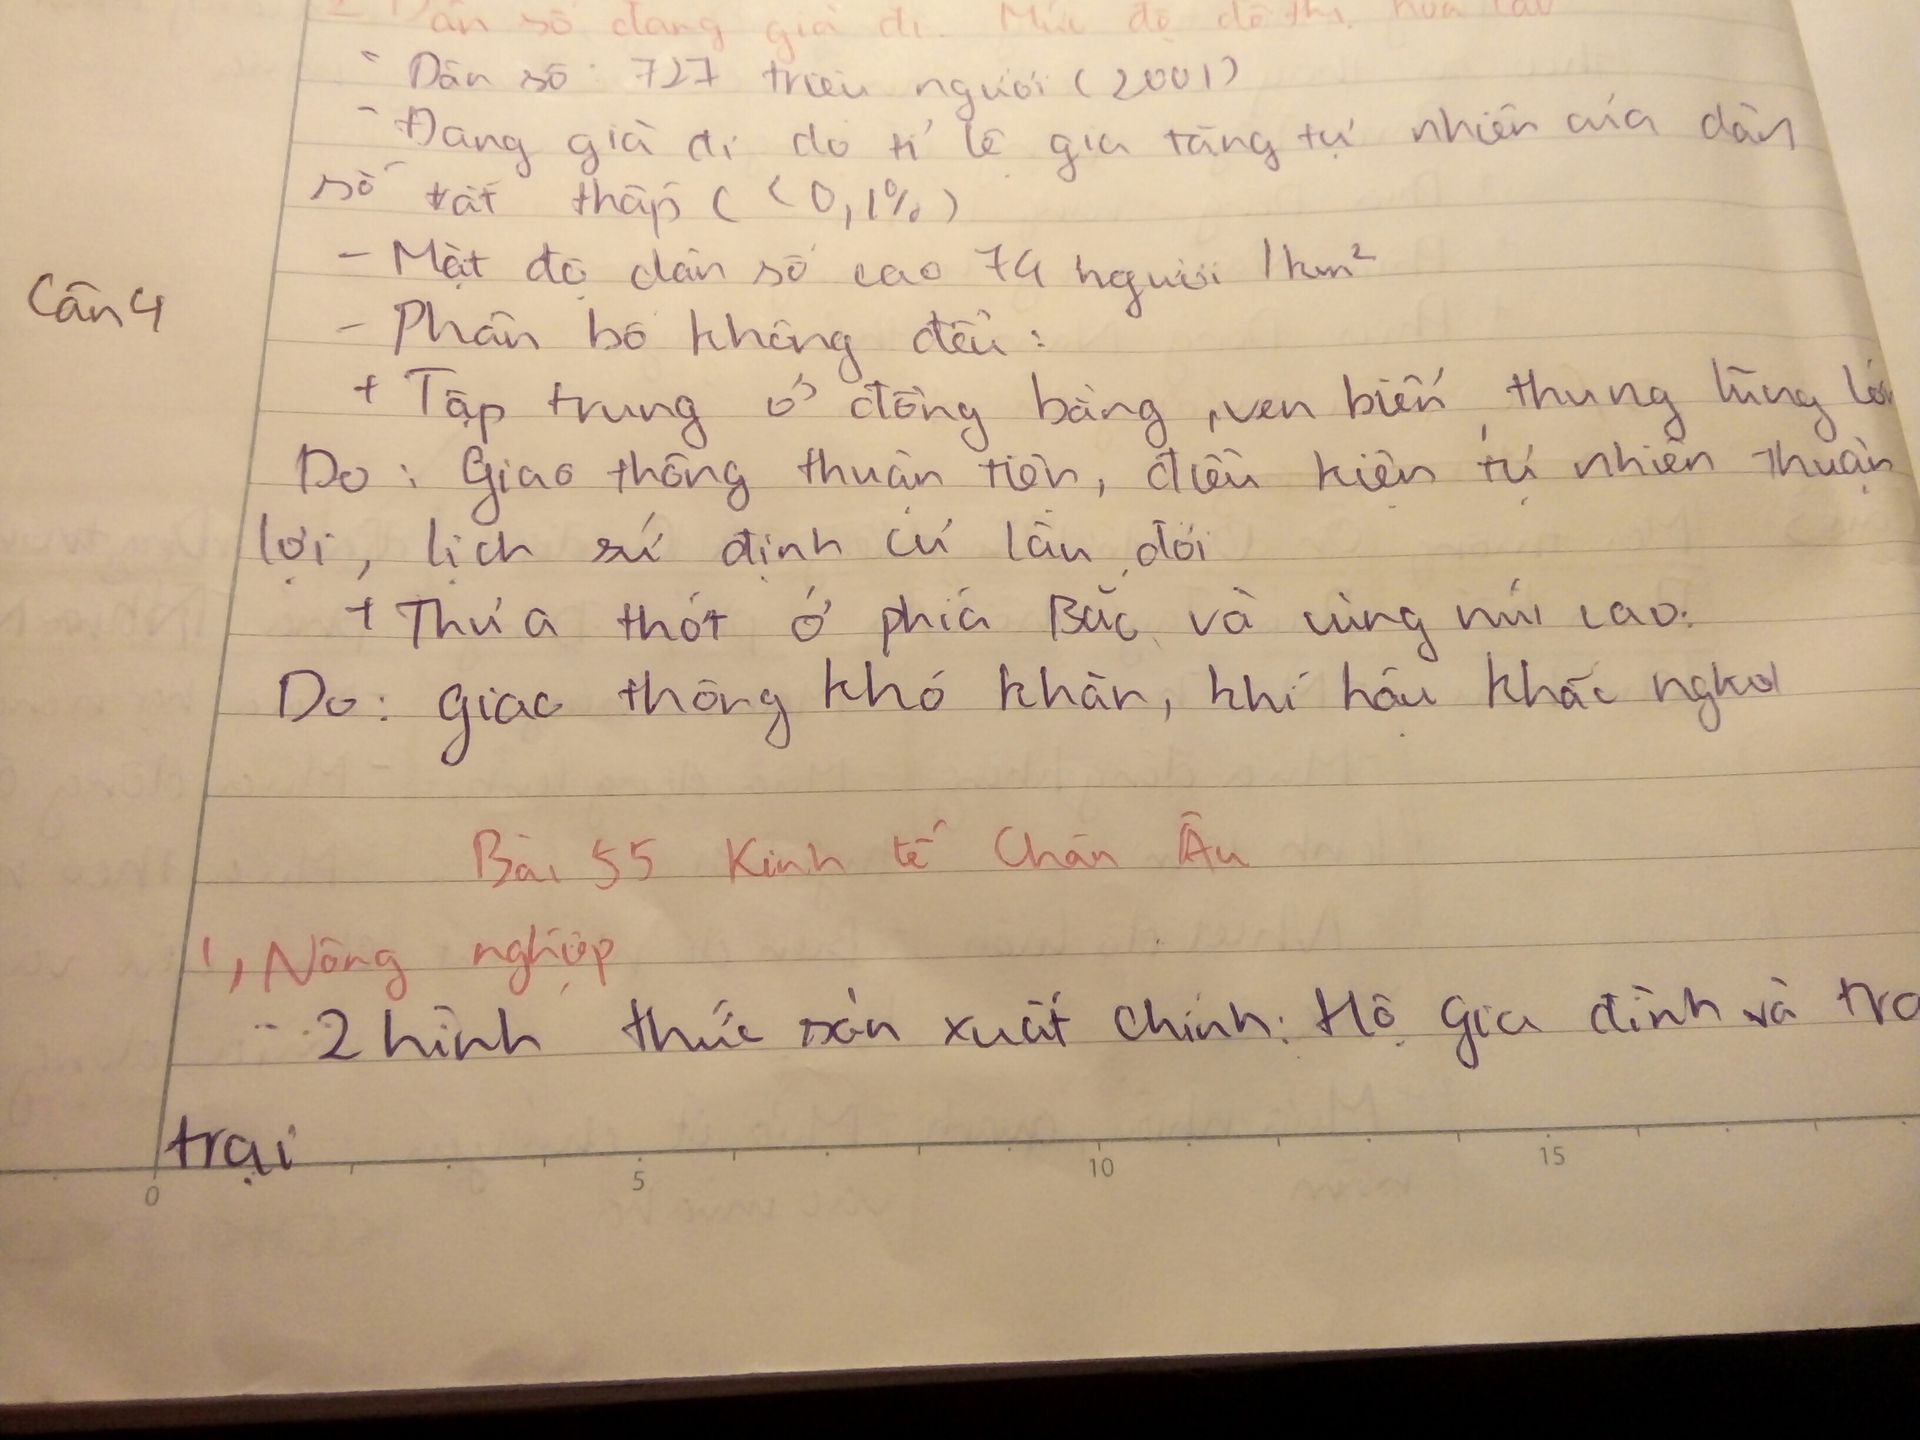 2 Dân số đang già đi. Mức độ đô thị hóa cao
- Dân số: 727 triệu người (2001)
- Đang già đi do tỉ lệ gia tăng tự nhiên của dân
số rất thấp (<0,1%)
- Mật độ dân số cao 74 người /km²
Câu 4
- Phân bố không đều:
+ Tập trung ở đồng bằng, ven biển, thung lũng lớn
Do: Giao thông thuận tiện, điều kiện tự nhiên thuận
lợi, lịch sử định cư lâu đời
+ Thưa thớt ở phía Bắc và vùng núi cao.
Do: giao thông khó khăn, khí hậu khắc
Bài 55 Kinh tế Châu Âu
1, Nông nghiệp
- 2 hình thức sản xuất chính: Hộ gia đình và
trại
0 5 10 15